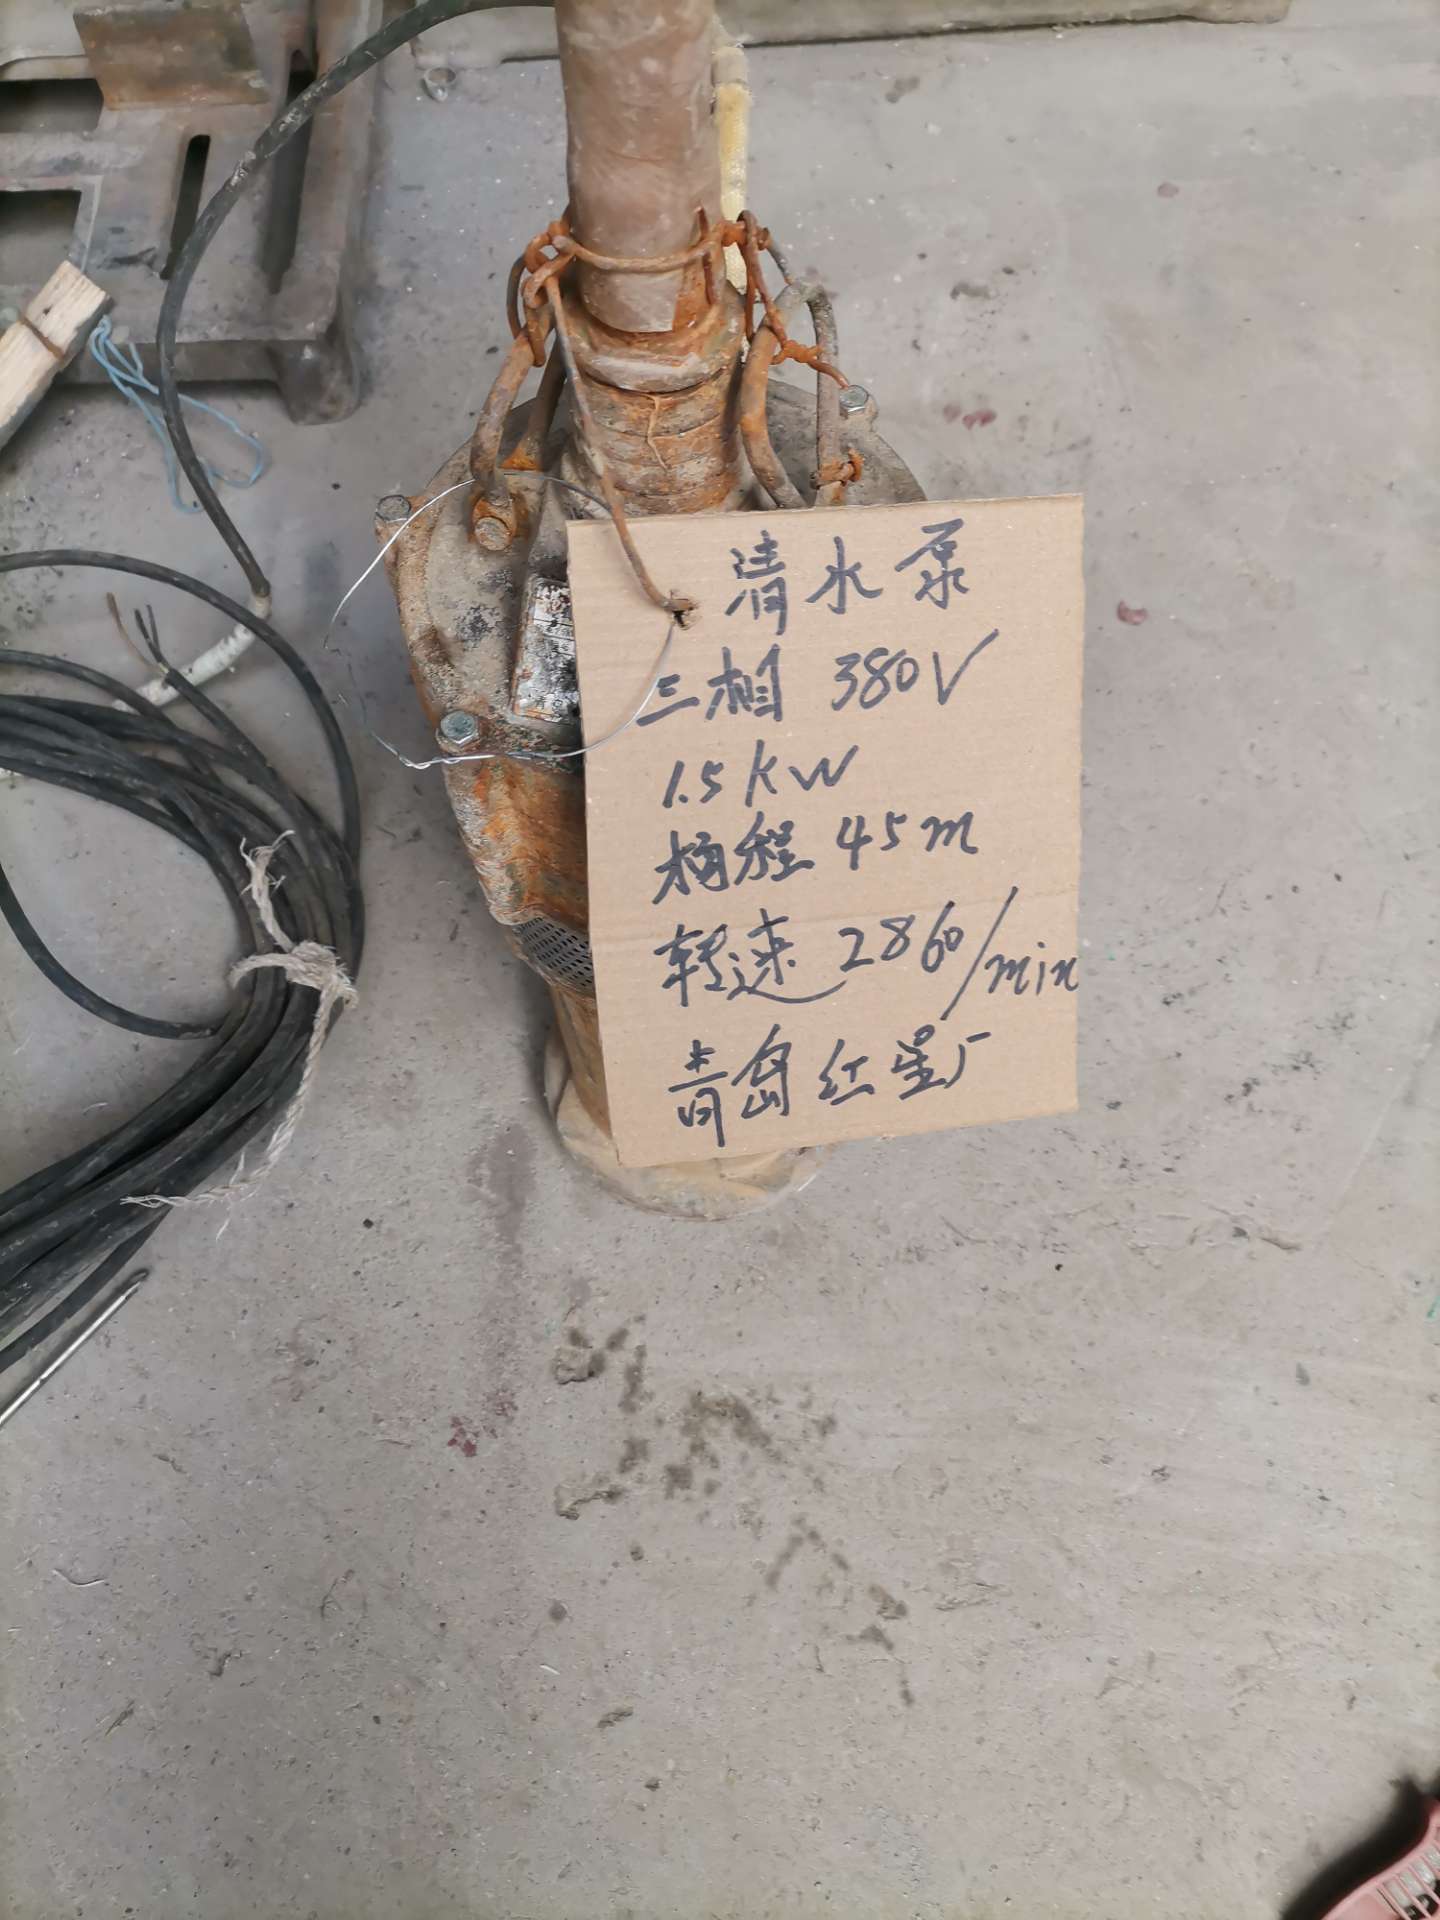 清水泵
三相 380V
1.5KW
扬程 45m
转速 2860/min
青岛红星厂